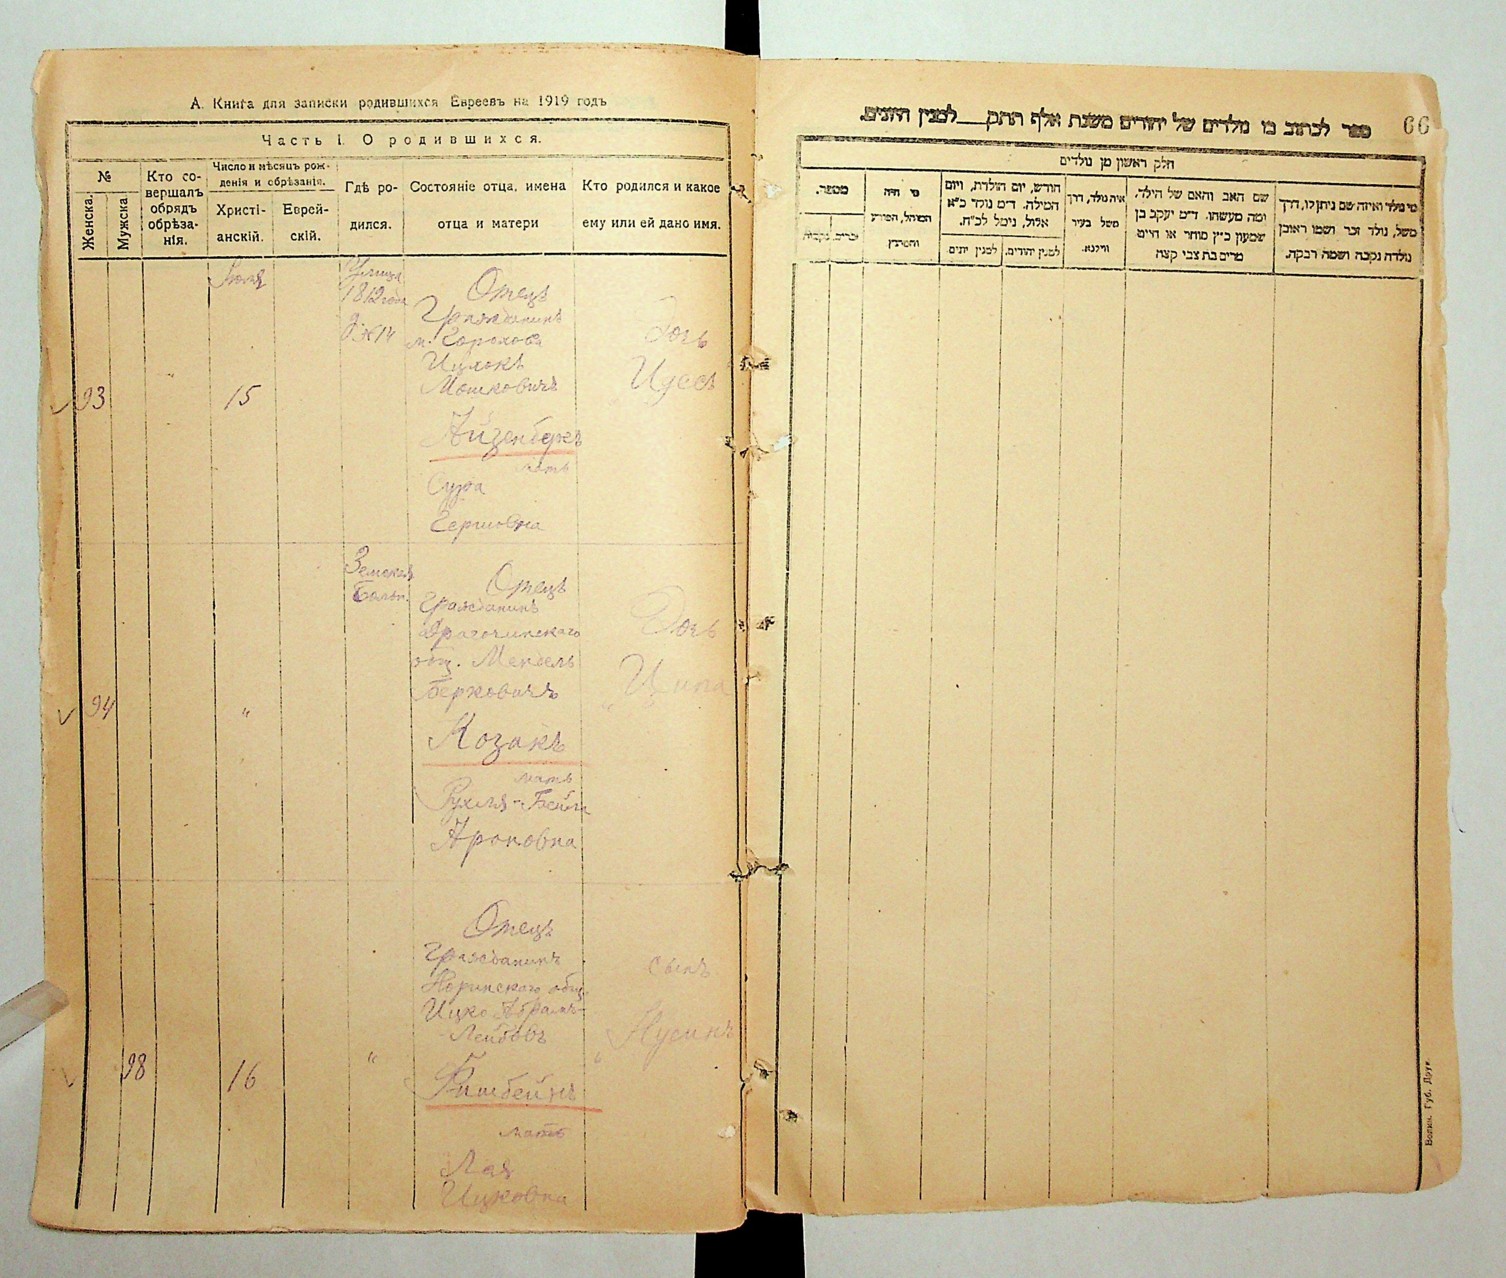 А. Книга для записки родившихся Евреевъ на 1919 годъ
Часть I. О родившихся.
№
Женска.
Мужска
Кто со-
вершалъ
обрядъ
обрѣза-
нія.
Число и мѣсяцъ рож-
денія и обрѣзанія.
Христі-
анскій.
Еврей-
скій.
Гдѣ ро-
дился.
Состояніе отца, имена
отца и матери
Кто родился и какое
ему или ей дано имя.
Іюля
93
15
Улица
1812 года
д. № 14
Отецъ
Гражданинъ
м. Горохова
Ицхокъ
Мошковичъ
Айзенбергъ
мать
Сура
Гершовна
Дочь
Идесъ
94
"
Земская
больн.
Отецъ
Гражданинъ
общ. Мендель
Берковичъ
Козакъ
мать
Рухля-Бейла
Ароновна
Дочь
" Ципа "
98
16
"
Отецъ
Гражданинъ
Норинскаго общ.
Ицко Абрамъ-
Лейбовъ
Фишбейнъ
мать
Лая
Ицковна
сынъ
" Нусинъ
66
ספר לכתוב בו נולדים של יהודים משנת אלף תתק___ למנין היונים.
חלק ראשון מן נולדים
מי נולד ואיזה שם ניתן לו, דרך
משל, נולד זכר ושמו ראובן
נולדה נקבה ושמה רבקה.
שם האב והאם של הילד,
ומה מעשהו. ד״מ יעקב בן
שמעון כ״ץ סוחר או חייט
מרים בת צבי קצה
איה נולד, דרך
משל בעיר
ווילנא.
חודש, יום הולדת, ויום
המילה. ד״מ נולד כ״א
אלול, נימל לכ״ח.
למנין יהודים.
למנין יונים
מי היה
המוהל, הפורע
והמוצץ
מספר.
Волын. Губ. Лоте